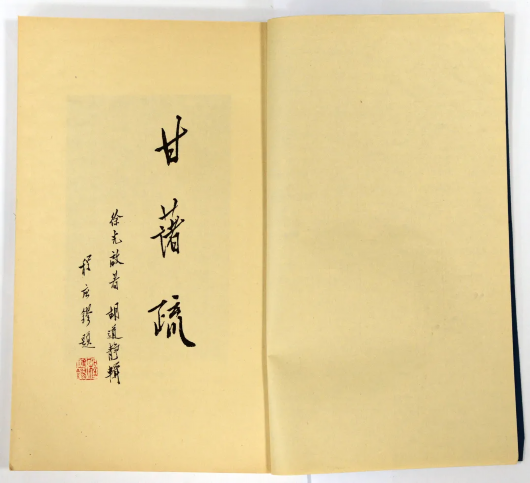 甘藷疏
徐光啟著 胡道靜輯
程應鏐題